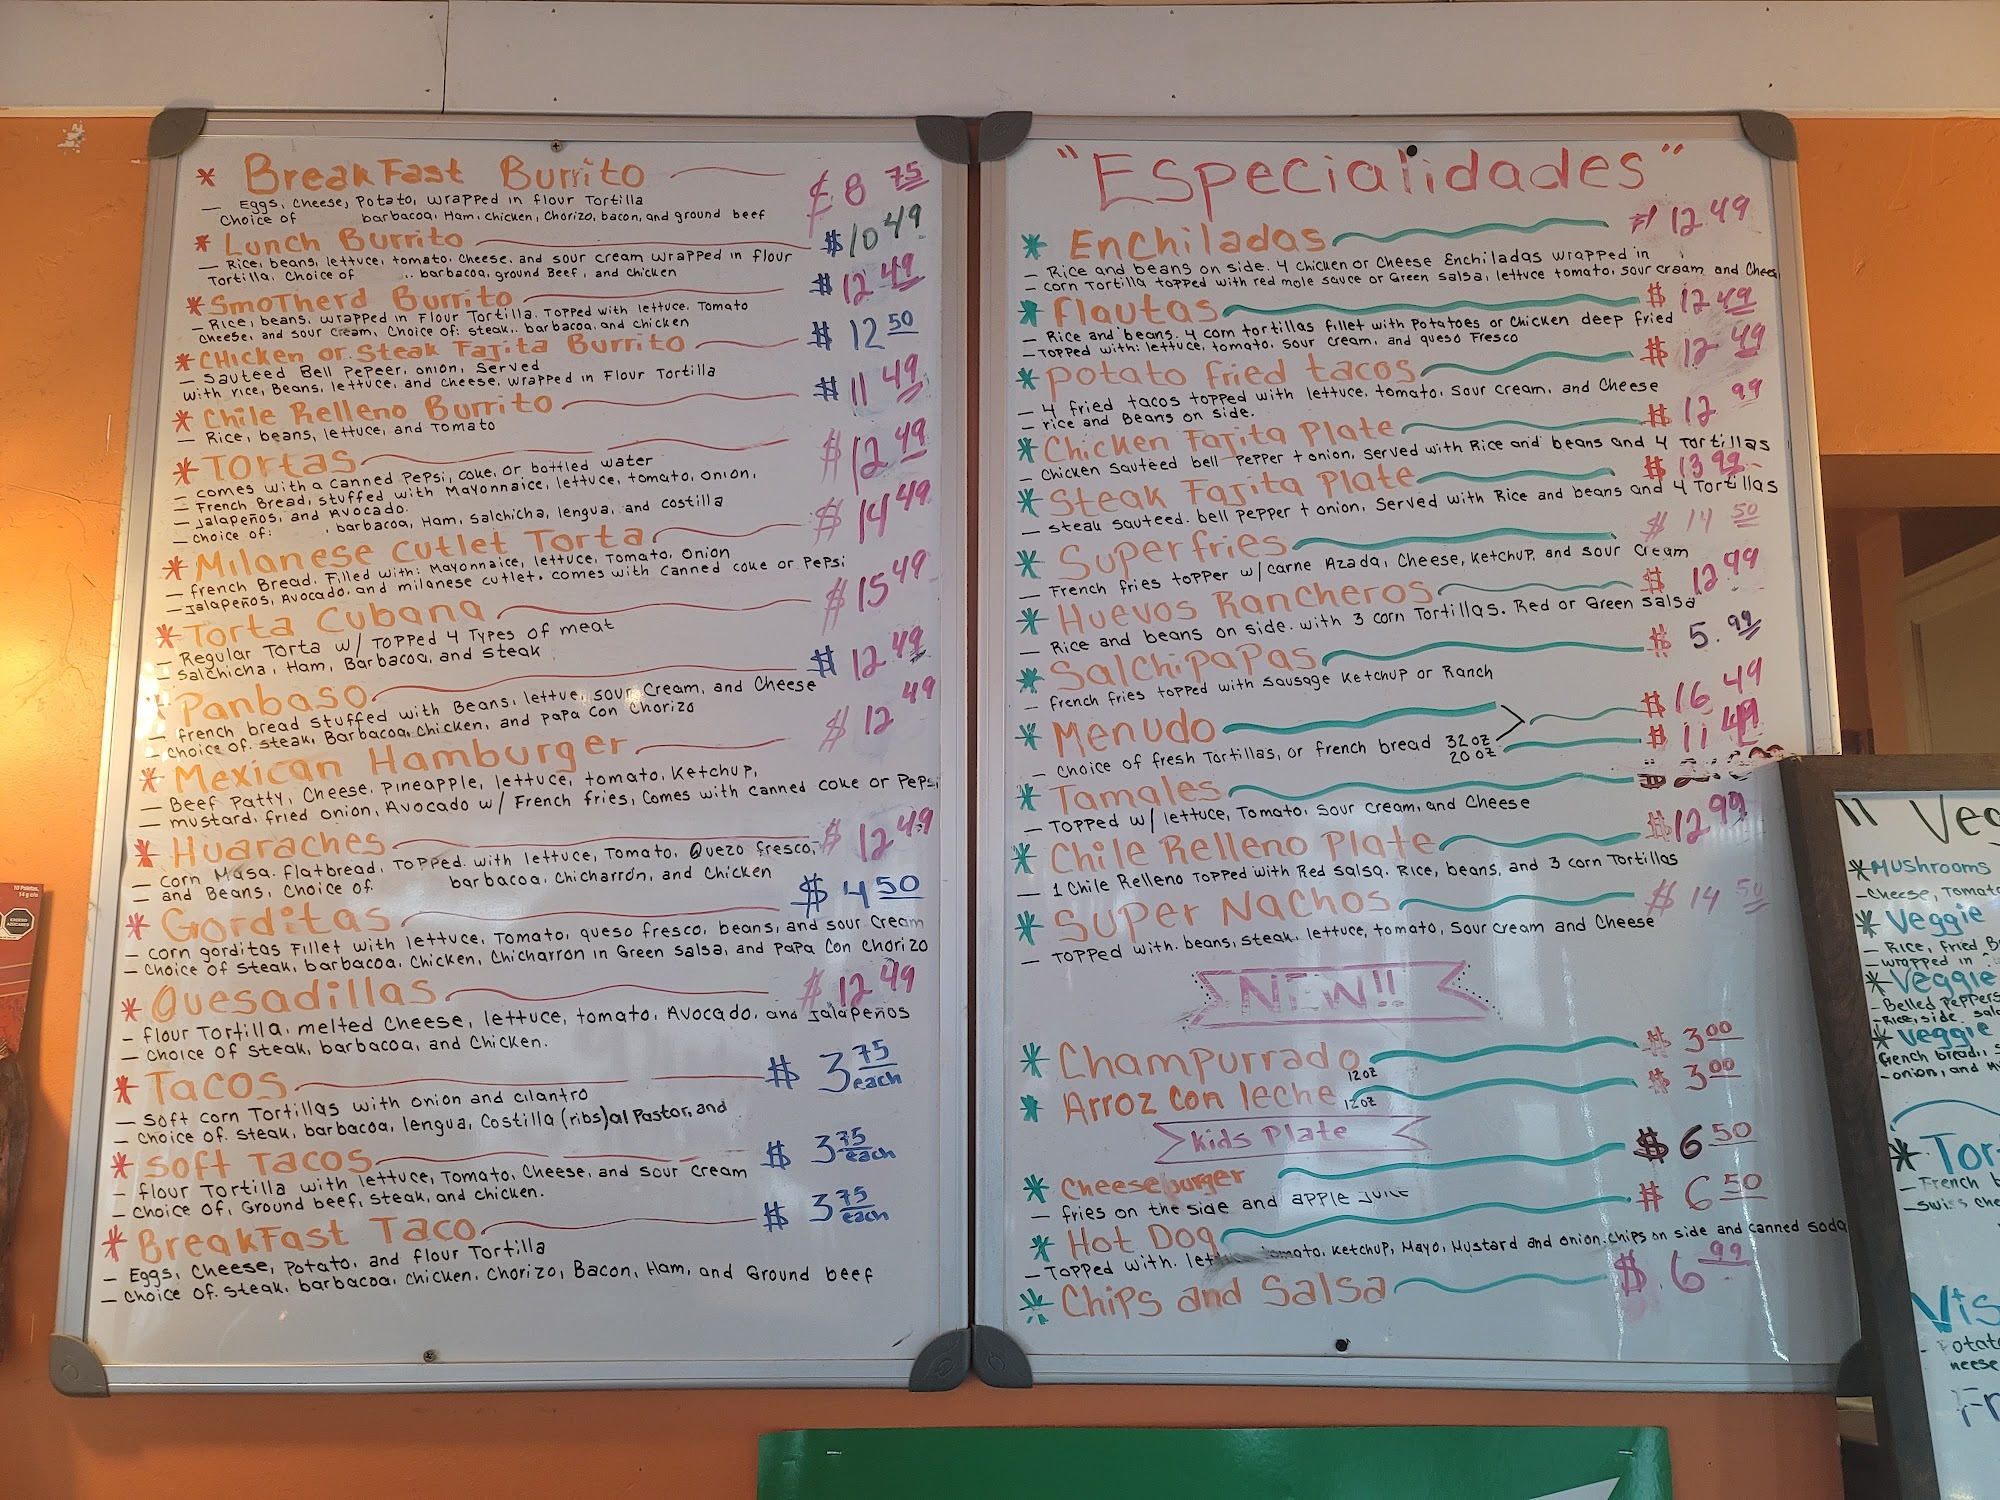 * Breakfast Burrito $8 75
— Eggs, Cheese, Potato, wrapped in flour Tortilla
Choice of barbacoa, Ham, chicken, Chorizo, bacon, and ground beef
* Lunch Burrito $10 49
— Rice, beans, lettuce, tomato, cheese, and sour cream wrapped in flour
Tortilla. Choice of barbacoa, ground Beef, and chicken
* Smotherd Burrito $12 49
— Rice, beans, wrapped in Flour Tortilla. Topped with lettuce, Tomato
cheese, and sour cream, Choice of: steak, barbacoa, and chicken
* Chicken or Steak Fajita Burrito $12 50
— Sauteed Bell Pepeer, onion, Served
with rice, Beans, lettuce, and cheese, wrapped in Flour Tortilla
* Chile Relleno Burrito $11 49
— Rice, beans, lettuce, and Tomato
* Tortas $12 49
— comes with a canned Pepsi, coke, or bottled water
— French Bread, stuffed with Mayonnaice, lettuce, tomato, onion,
— Jalapeños, and Avocado.
— choice of: barbacoa, Ham, Salchicha, lengua, and costilla
* Milanese cutlet Torta $14 49
— french Bread. Filled with: Mayonnaice, lettuce, Tomato, onion
— Jalapeños, Avocado, and milanese cutlet. comes with canned coke or Pepsi
* Torta Cubana $15 49
— Regular Torta w/ Topped 4 Types of meat
— Salchicha, Ham, Barbacoa, and steak
Panbaso $12 49
— french bread stuffed with Beans, lettuce, sour cream, and Cheese
— choice of. steak, Barbacoa, chicken, and papa con chorizo
* Mexican Hamburger $12 49
— Beef Patty, Cheese, Pineapple, lettuce, tomato, Ketchup,
— mustard, fried onion, Avocado w/ French fries, Comes with canned coke or Pepsi
* Huaraches $12 49
— Corn Masa. flatbread, Topped. with lettuce, Tomato, Quezo fresco,
— and Beans, Choice of. barbacoa, Chicharrón, and Chicken
* Gorditas $4 50
— corn gorditas Fillet with lettuce, Tomato, queso fresco, beans, and sour cream
— choice of steak, barbacoa, chicken, Chicharron in Green salsa, and papa con chorizo
* Quesadillas $12 49
— flour Tortilla, melted cheese, lettuce, tomato, Avocado, and Jalapeños
— choice of steak, barbacoa, and chicken.
* Tacos $3 75 each
— soft corn Tortillas with onion and cilantro
— choice of. steak, barbacoa, lengua, Costilla (ribs) al Pastor, and
* Soft Tacos $3 75 each
— flour Tortilla with lettuce, Tomato, Cheese, and sour cream
— choice of, Ground beef, steak, and chicken.
* Breakfast Taco $3 75 each
— Eggs, cheese, potato, and flour Tortilla
— choice of. steak, barbacoa, chicken, Chorizo, Bacon, Ham, and Ground beef
"Especialidades"
* Enchiladas $12 49
— Rice and beans on side. 4 chicken or cheese Enchiladas wrapped in
— corn Tortilla topped with red mole sauce or Green salsa, lettuce tomato, sour cream and Chees
* Flautas $12 49
— Rice and beans. 4 corn tortillas fillet with potatoes or chicken deep fried
— Topped with: lettuce, tomato, sour cream, and queso Fresco
* Potato fried tacos $12 49
— 4 fried tacos topped with lettuce, tomato, sour cream, and cheese
— rice and Beans on side.
* Chicken Fajita Plate $12 99
— Chicken Sauteed bell Pepper + onion, served with Rice and beans and 4 Tortillas
* Steak Fajita Plate $13 99
— steak sauteed. bell pepper + onion, Served with Rice and beans and 4 Tortillas
* Superfries $14 50
— French fries topper w/ carne Azada, Cheese, Ketchup, and sour cream
* Huevos Rancheros $12 99
— Rice and beans on side. with 3 corn Tortillas. Red or Green Salsa
* Salchipapas $5.99
— french fries topped with sausage Ketchup or Ranch
* Menudo $16 49
— Choice of fresh Tortillas, or french bread 32oz
20oz $11 49
* Tamales
— Topped w/ lettuce, Tomato, sour cream, and Cheese
* Chile Relleno Plate $12 99
— 1 Chile Relleno Topped with Red salsa. Rice, beans, and 3 corn Tortillas
* Super Nachos $14 50
— Topped with. beans, steak, lettuce, tomato, sour cream and Cheese
NEW!!
* Champurrado 12oz $3 00
* Arroz con leche 12oz $3 00
Kids Plate
* Cheeseburger $6 50
— fries on the side and apple juice
* Hot Dog $6 50
— Topped with. tomato, Ketchup, Mayo, Mustard and onion. chips on side and canned soda
* Chips and Salsa $6 99
" Veg
* Mushrooms
— Cheese, Tomato
* Veggie
— Rice, fried B
— wrapped in
* Veggie
— Belled Peppers
— Rice, side. sala
* Veggie
french bread,
— onion, and
* Tor
— French b
— Swiss che
Vis
— Potat
neese
Fr